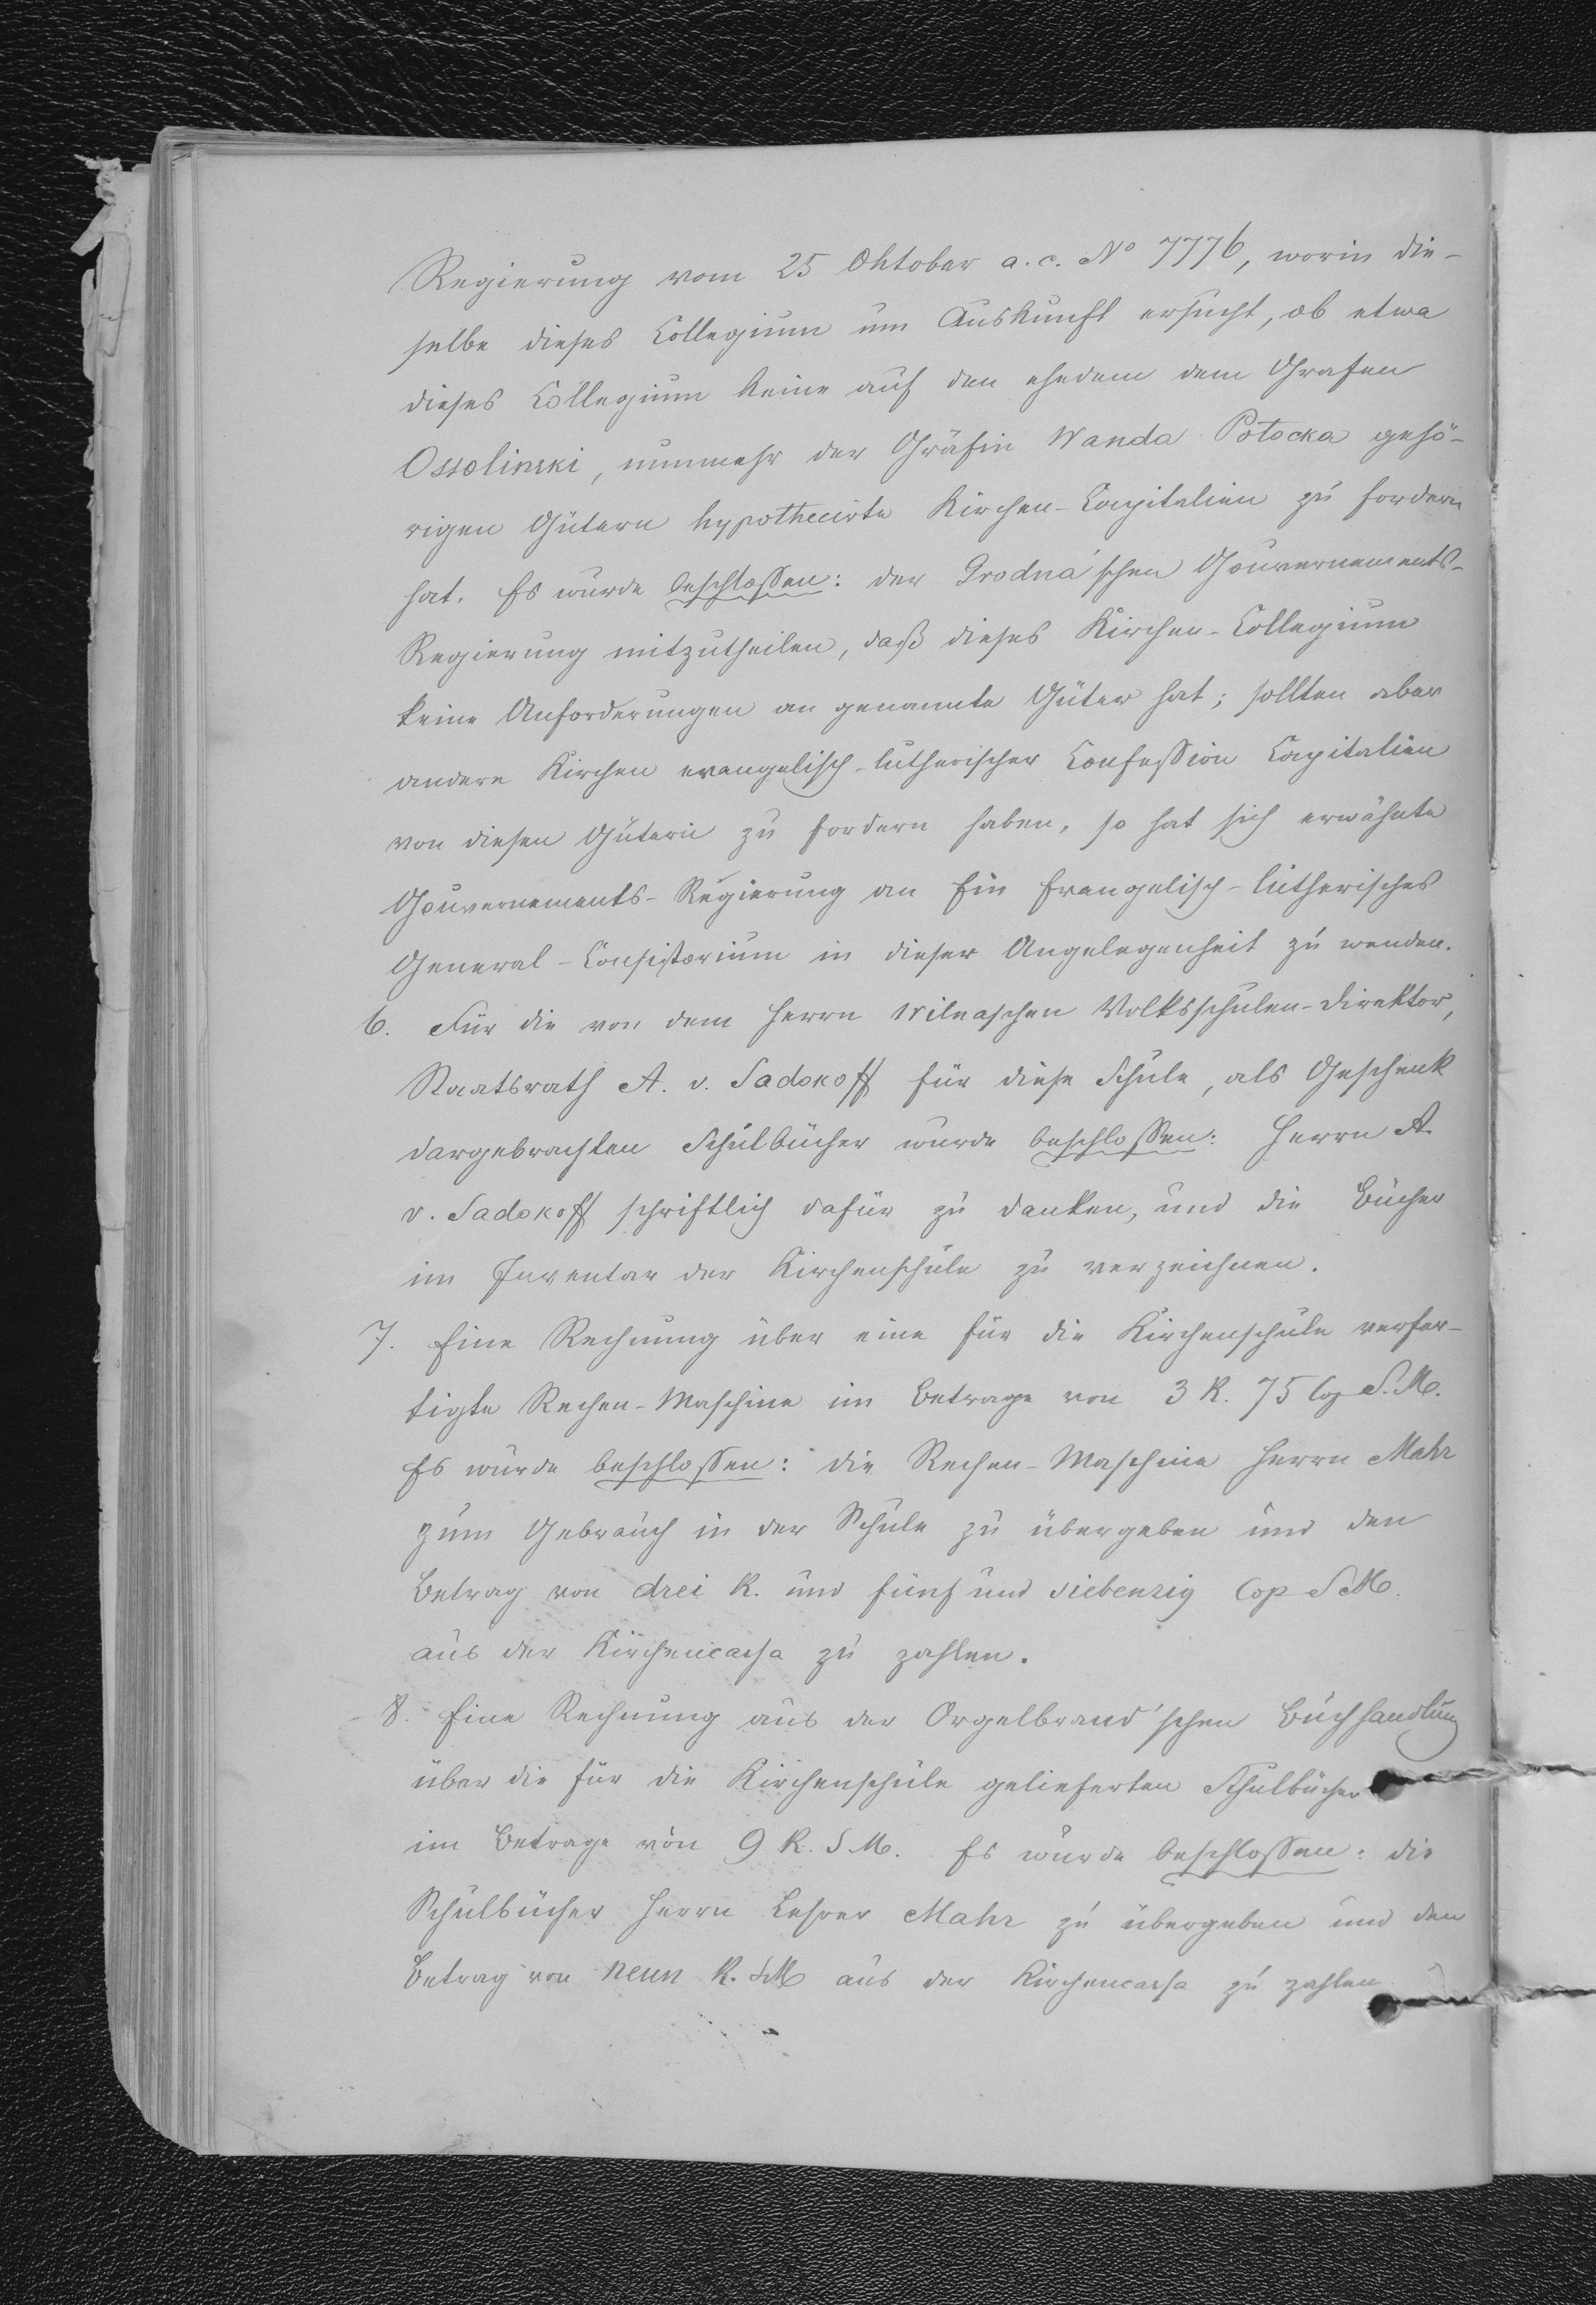 Regierung vom 25 Oktober a. c. No 7776, worin die-
selbe dieses Collegium um Auskunft ersucht, ob etwa
dieses Collegium keine auf den ehedem dem Grafen
Ossolinski, nunmehr der Gräfin Wanda Potocka gehö-
rigen Gütern hypothecirte Kirchen-Capitalien zu fordern
hat. Es wurde beschlossen: der Grodna'schen Gouvernements-
Regierung mitzutheilen, daß dieses Kirchen-Collegium
keine Anforderungen an genannte Güter hat; sollten aber
andere Kirchen evangelisch-lutherischer Confession Capitalien
von diesen Gütern zu fordern haben, so hat sich erwähnte
Gouvernements-Regierung an Ein Evangelisch-lutherisches
General-Consistorium in dieser Angelegenheit zu wenden.
6. Für die von dem Herrn Wilnaschen Volksschulen-Direktor,
Staatsrath A. v. Sadokoff für diese Schule, als Geschenk
dargebrachten Schulbücher wurde beschlossen: Herrn A.
v. Sadokoff schriftlich dafür zu danken, und die Bücher
im Inventar der Kirchenschule zu verzeichnen.
7. Eine Rechnung über eine für die Kirchenschule verfer-
tigte Rechen-Maschine im Betrage von 3 R. 75 Cop S. M.
Es wurde beschlossen: die Rechen-Maschine Herrn Mahr
zum Gebrauch in der Schule zu übergeben und den
Betrag von drei R. und fünf und siebenzig Cop S M.
aus der Kirchencassa zu zahlen.
8. Eine Rechnung aus der Orgelbrand'schen Buchhandlung
über die für die Kirchenschule gelieferten Schulbücher
im Betrage von 9 R. S. M. Es wurde beschlossen: die
Schulbücher Herrn Lehrer Mahr zu übergeben und den
Betrag von neun R. SM aus der Kirchencassa zu zahlen